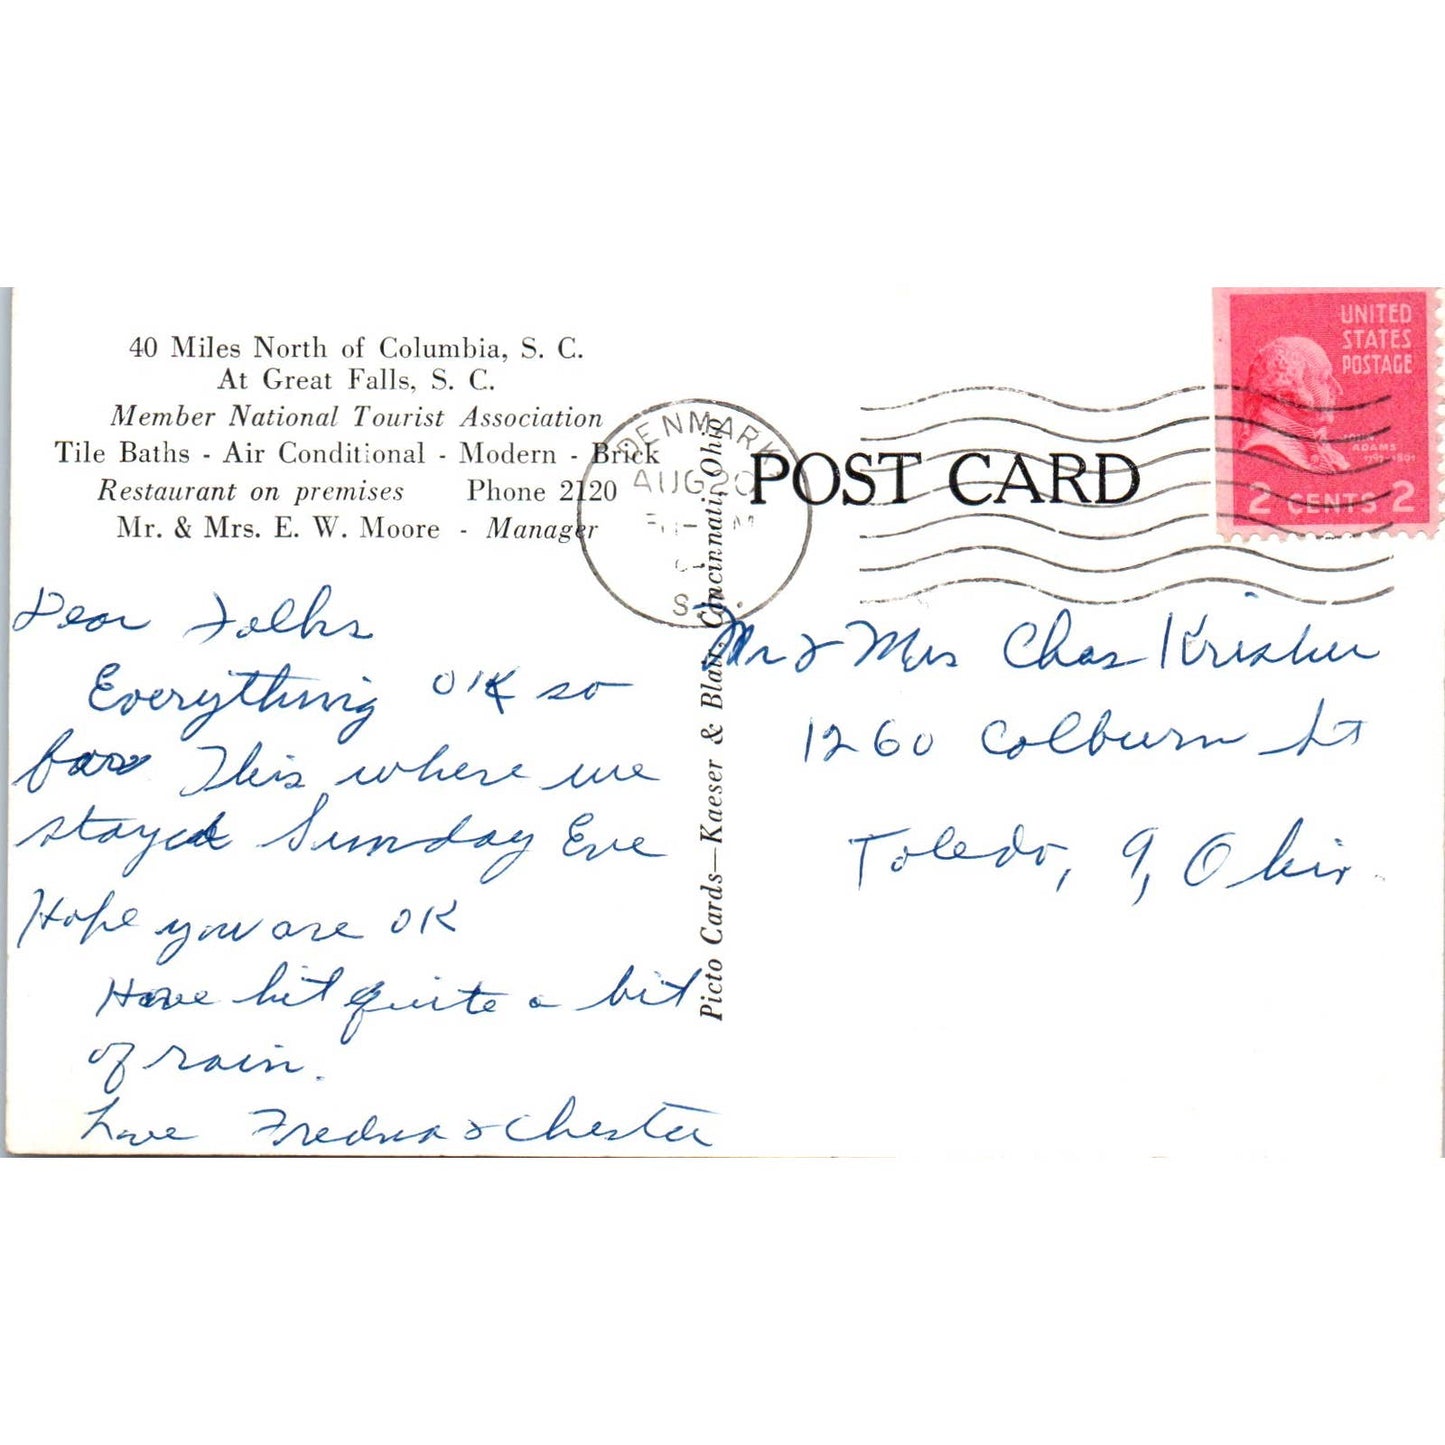 40 Miles North of Columbia, S. C.
At Great Falls, S. C.
Member National Tourist Association
Tile Baths - Air Conditional - Modern - Brick
Restaurant on premises Phone 2120
Mr. & Mrs. E. W. Moore - Manager
Dear Folks
Everything OK so
far This where we
stayed Sunday Eve
Hope you are OK
Have hit quite a bit
of rain.
Love Fredna & Chester
DENMARK
AUG 20
S.C.
Picto Cards—Kaeser & Blair, Cincinnati, Ohio
POST CARD
UNITED
STATES
POSTAGE
JOHN
ADAMS
1797-1801
2 CENTS 2
Mr & Mrs Chas Krisher
1260 Colburn St
Toledo, 9, Ohio.